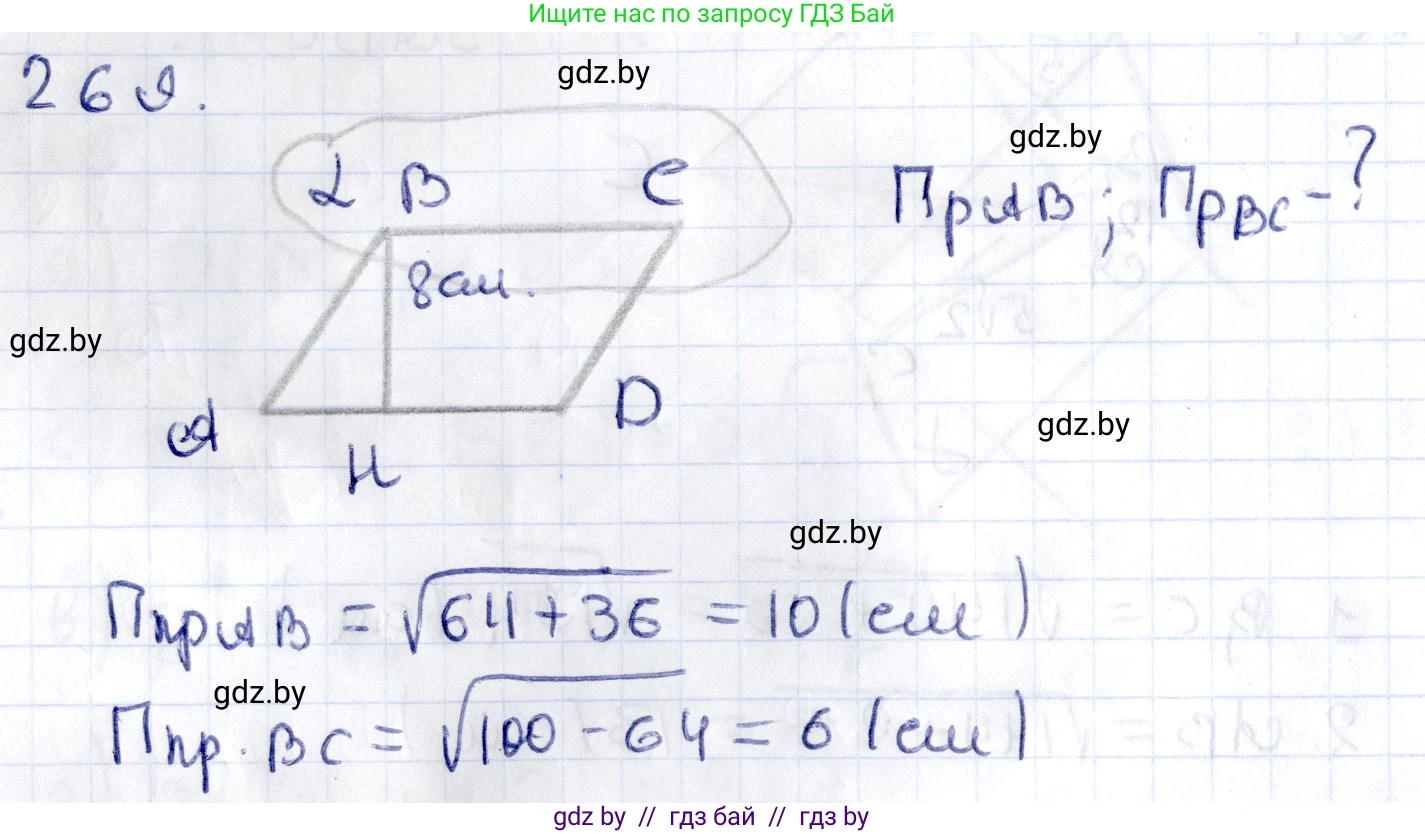 Ищите нас по запросу ГДЗ Бай
269.
gdz.by
gdz.by
α B C
Пр AB; Пр BC - ?
8 см.
gdz.by
A
D
gdz.by
H
gdz.by
Ппр AB = √64+36 = 10 (см)
gdz.by
Ппр. BC = √100-64 = 6 (см)
gdz.by // гдз бай // гдз by